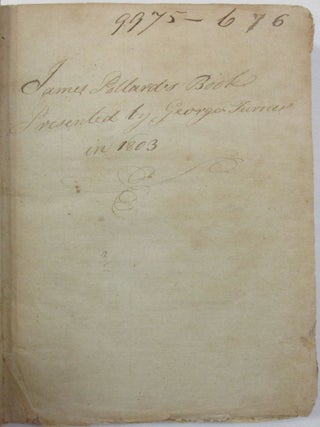 9975-676
James Pollard's Book
Presented by George Turner
in 1803